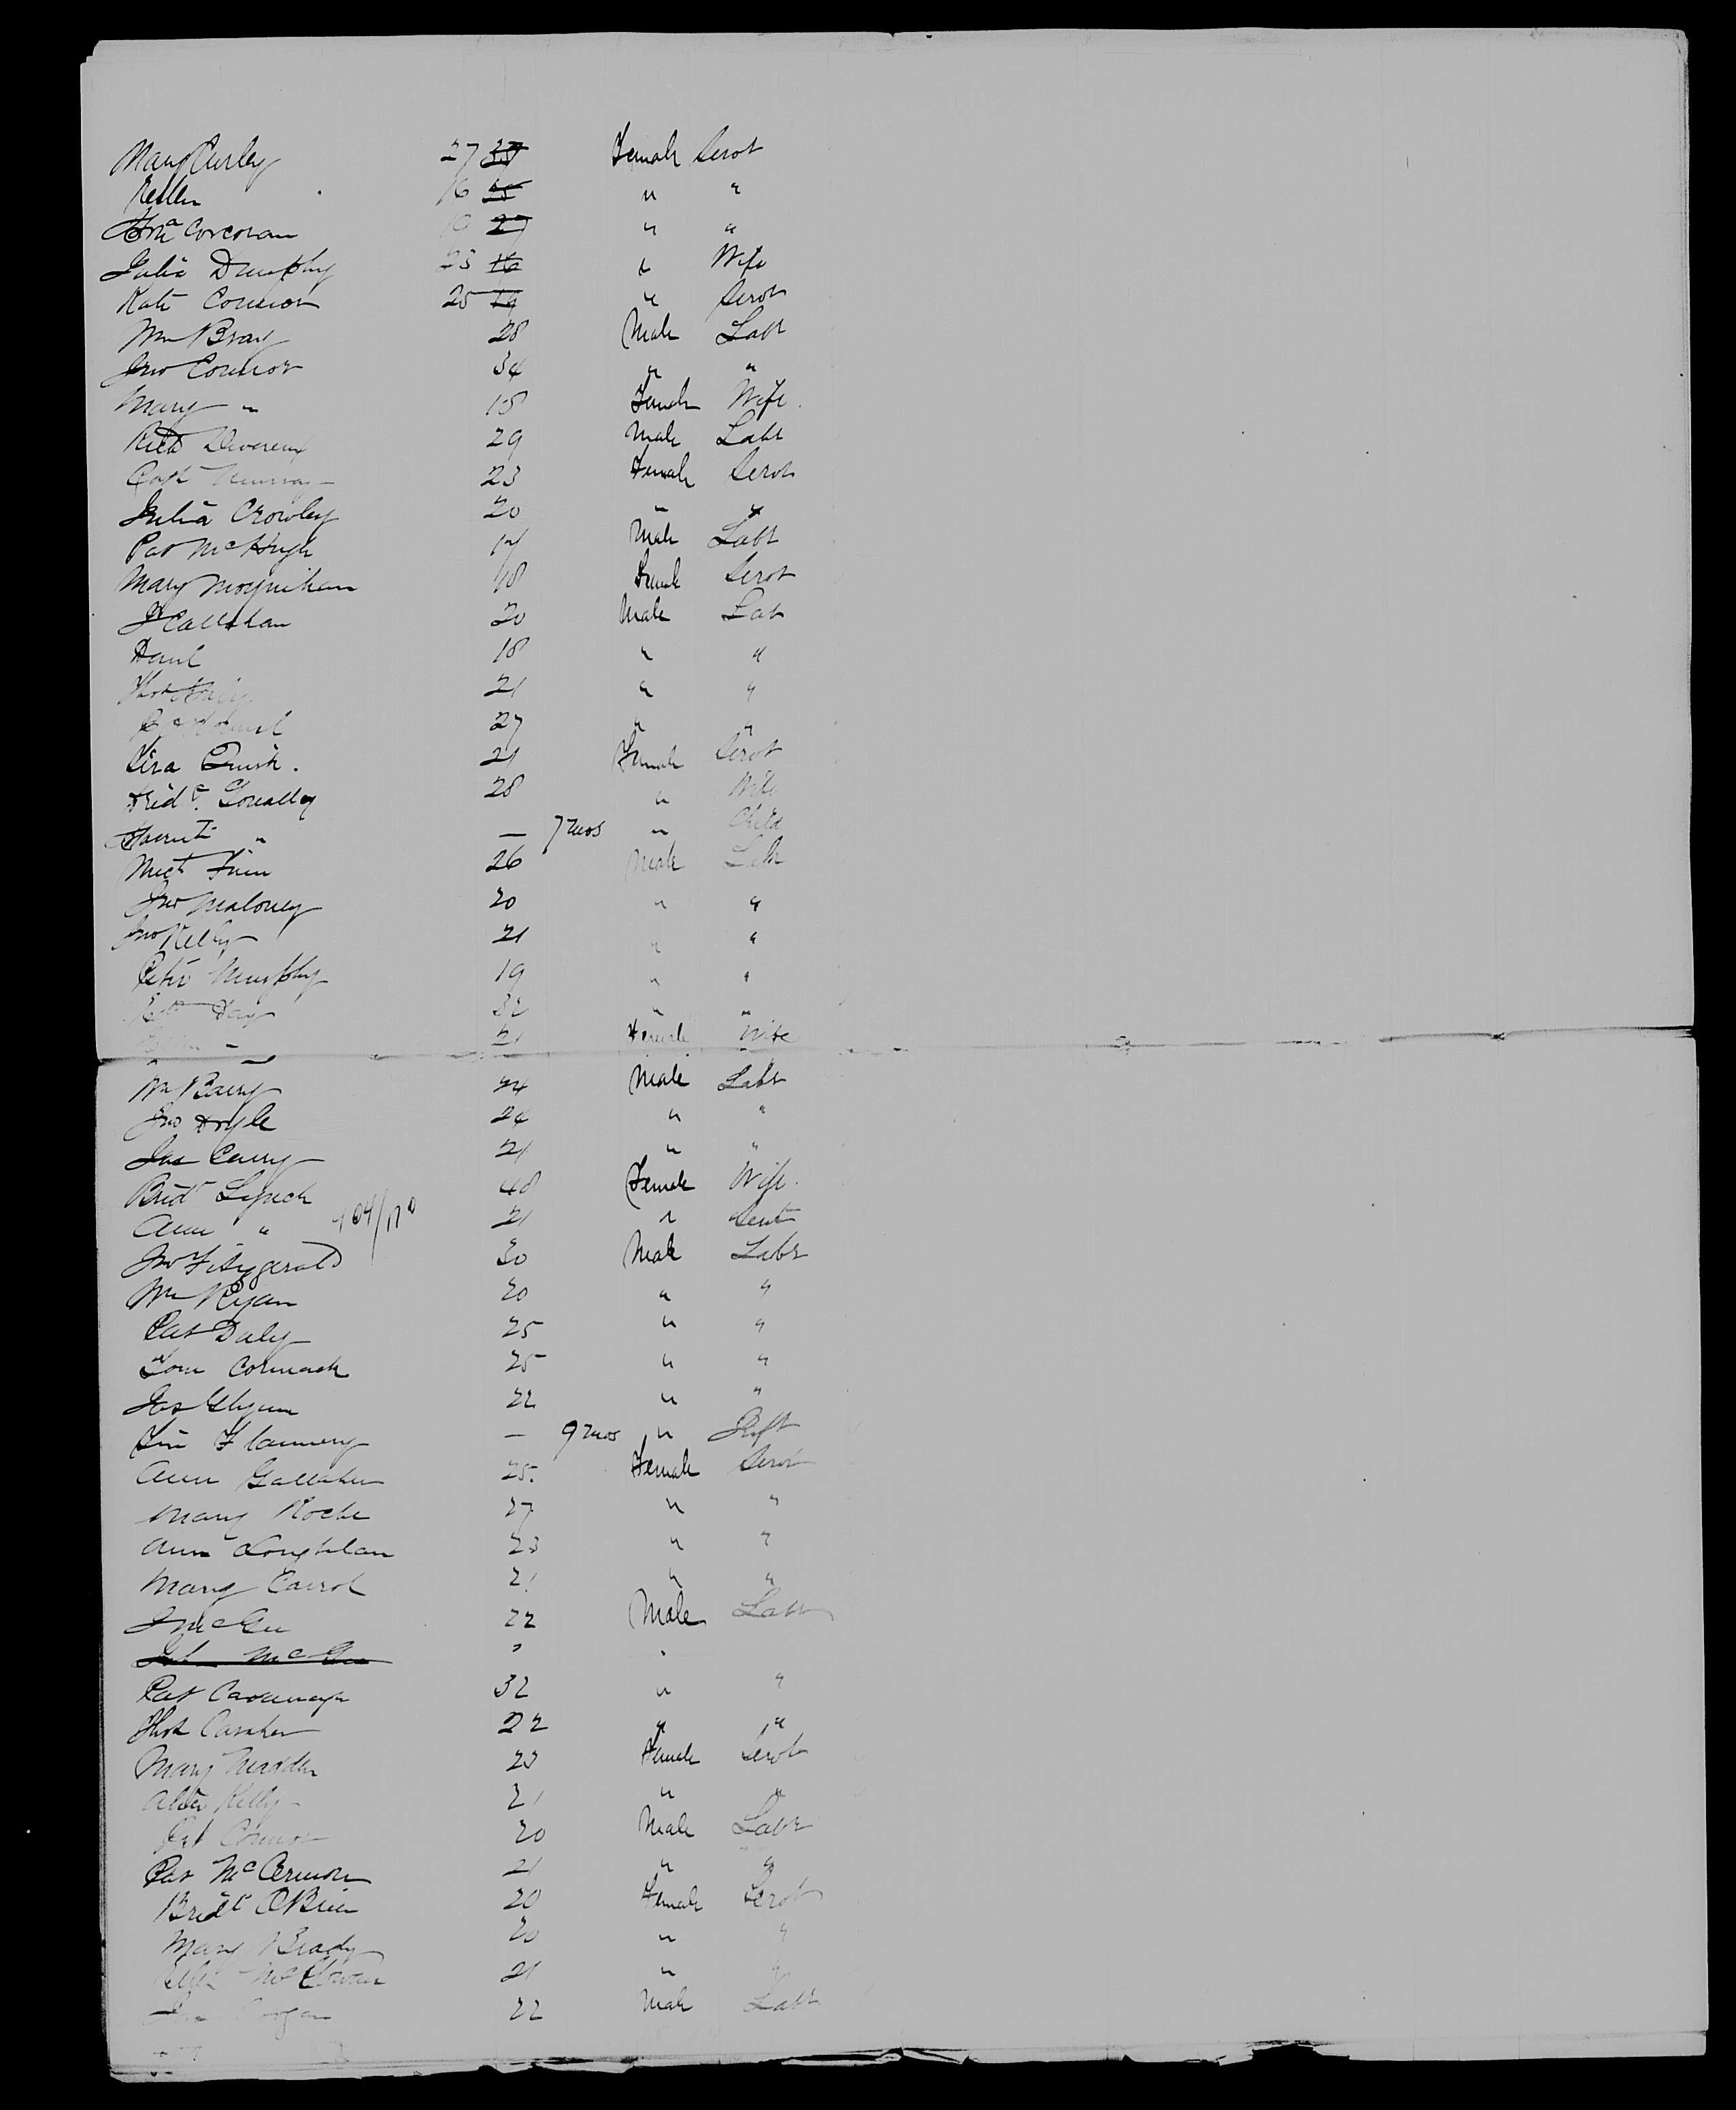 Mary Curley 27 Female Servt
Kellen 16 " "
Corcoran 19 27 " "
Julia Dunphy 23 16 " Wife
Kate Connor 25 19 " Servt
Wm Bray 28 Male Labr
Jno Connor 34 " "
Mary " 18 Female Wife
Richd Devereux 29 Male Labr
Cath Murray 23 Female Servt
Julia Crowley 20 " "
Pat McHugh 17 Male Labr
Mary Moynihan 18 Female Servt
Callahan 20 Male Lab
Danl 18 " "
Thos 21 " "
27 " "
Liza Quirk. 21 Female Servt
Bridt. 28 " Wife
" — 7 mos " Child
Micl Finn 26 Male Labr
Jno Maloney 20 " "
Jno Kelly 21 " "
Peter Murphy 19 " "
Day 32 " "
" 21 Female Wife
Wm Barry 24 Male Labr
Jno Doyle 24 " "
Jas 21 " "
Bridt Lynch 48 Female Wife.
Ann " 21 " Servt
Jno Fitzgerald 30 Male Labr
Wm Ryan 20 " "
Pat Daly 25 " "
Tom Cormack 25 " "
Jas Glynn 22 " "
Tim Flannery — 9 mos "
Ann Gallaher 25. Female Servt
Mary Roche 27 " "
Ann Loughlan 23 " "
Mary Carrol 21 " "
J McGee 22 Male Labr
McGee "
Pat Cavanagh 32 " "
Thos 22 " "
Mary Madden 23 Female Servt
Kelly 21 " "
Pat Connor 20 Male Labr
Pat 21 " "
Bridt OBrien 20 Female Servt
Mary Brady 20 " "
21 " "
22 Male Labr